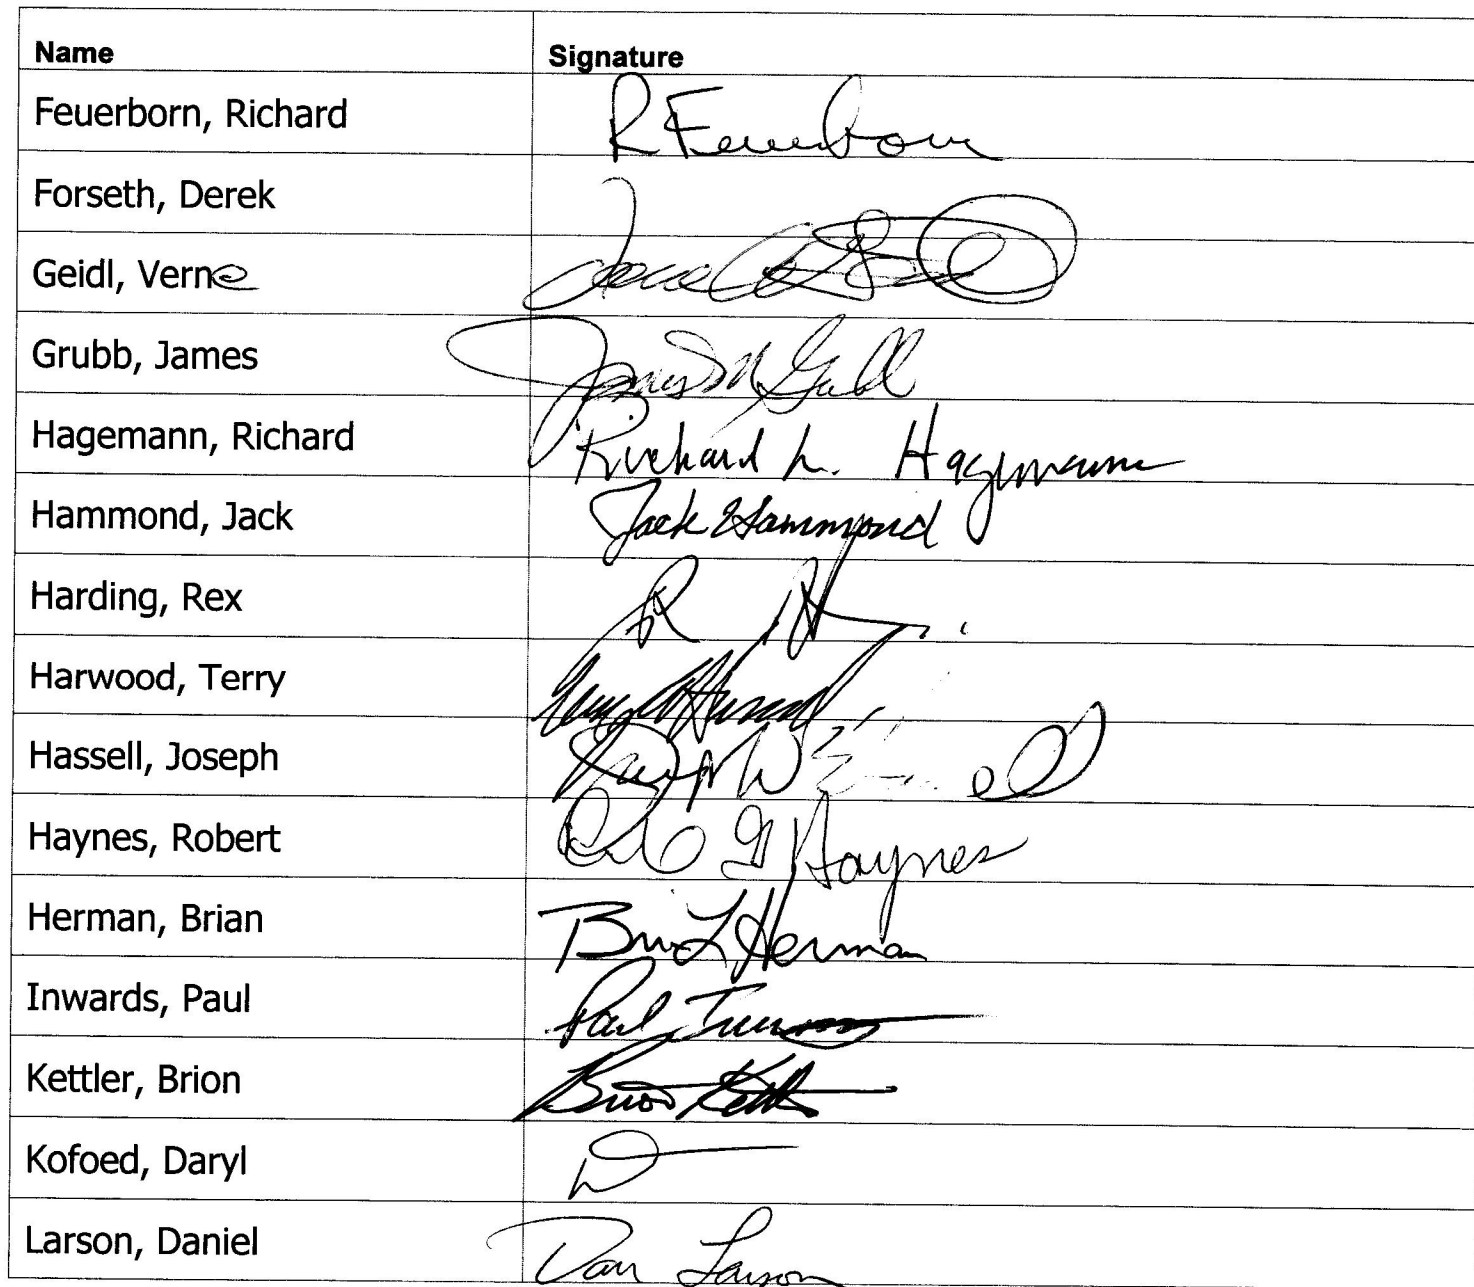 Name Signature
Feuerborn, Richard R Feuerborn
Forseth, Derek
Geidl, Verne
Grubb, James James M Grubb
Hagemann, Richard Richard L. Hagemann
Hammond, Jack Jack Hammond
Harding, Rex R H
Harwood, Terry Terry Harwood
Hassell, Joseph W
Haynes, Robert G Haynes
Herman, Brian Brian L Herman
Inwards, Paul Paul Inwards
Kettler, Brion Brion Kettler
Kofoed, Daryl D
Larson, Daniel Dan Larson